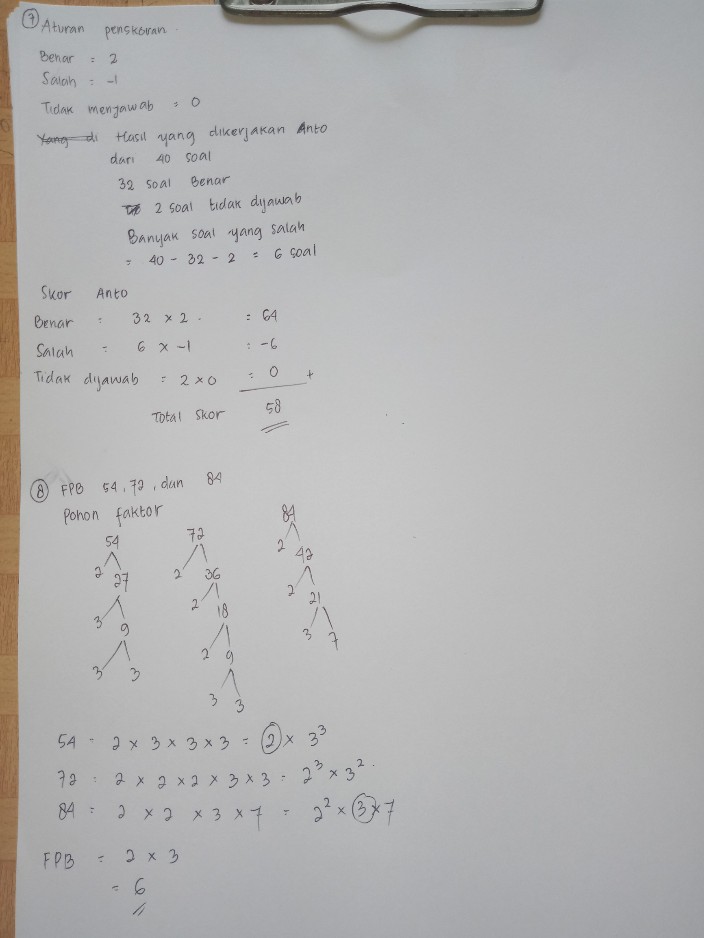 7 Aturan penskoran.
Benar = 2
Salah = -1
Tidak menjawab = 0
Yang di Hasil yang dikerjakan Anto
dari 40 soal
32 soal Benar
2 soal tidak dijawab
Banyak soal yang salah
= 40 - 32 - 2 = 6 soal
Skor Anto
Benar : 32 x 2. = 64
Salah = 6 x -1 = -6
Tidak dijawab = 2 x 0 = 0 +
Total skor 58
8 FPB 54, 72, dan 84
Pohon faktor
54 72 84
2 27 2 36 2 42
3 9 2 18 2 21
3 3 2 9 3 7
3 3
54 = 2 x 3 x 3 x 3 = 2 x 3³
72 = 2 x 2 x 2 x 3 x 3 = 2³ x 3².
84 = 2 x 2 x 3 x 7 = 2² x 3 x 7
FPB = 2 x 3
= 6